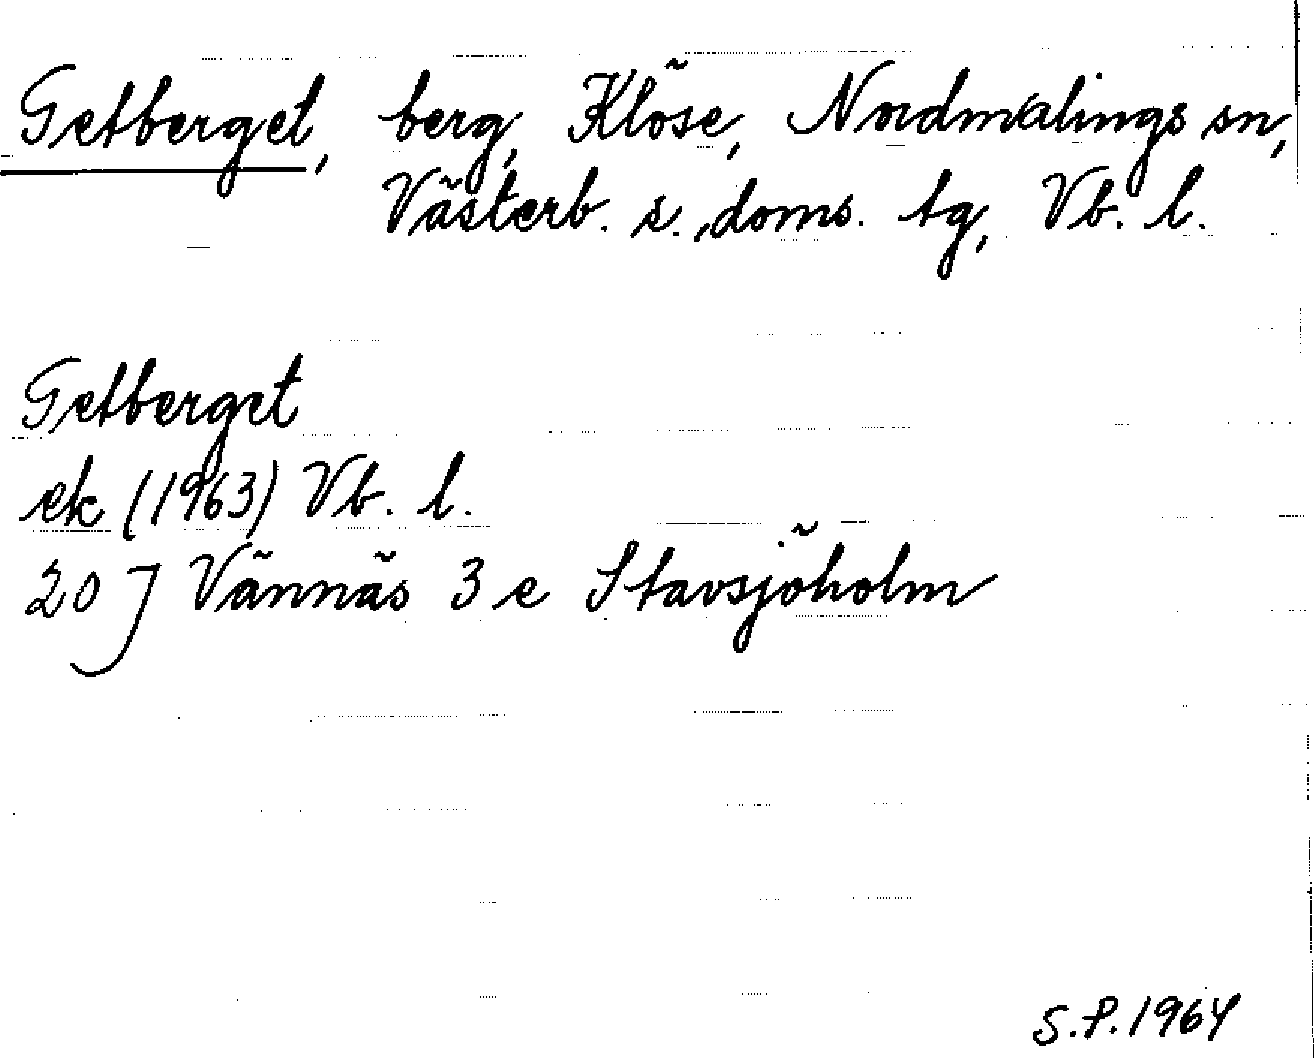 Getberget, berg, Klöse, Nordmalings sn,
Västerb. s. doms. tg, Vb. l.
Getberget
ek (1963) Vb. l.
20 J Vännäs 3 e Stavsjöholm
S.P. 1964